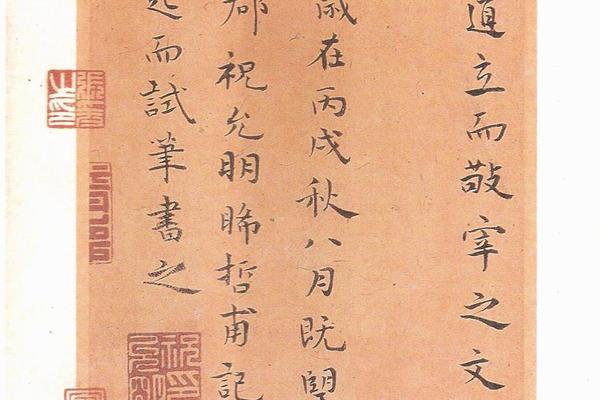 道立而敬宰之文
歲在丙戌秋八月既望
郡祝允明晞哲甫記
而試筆書之